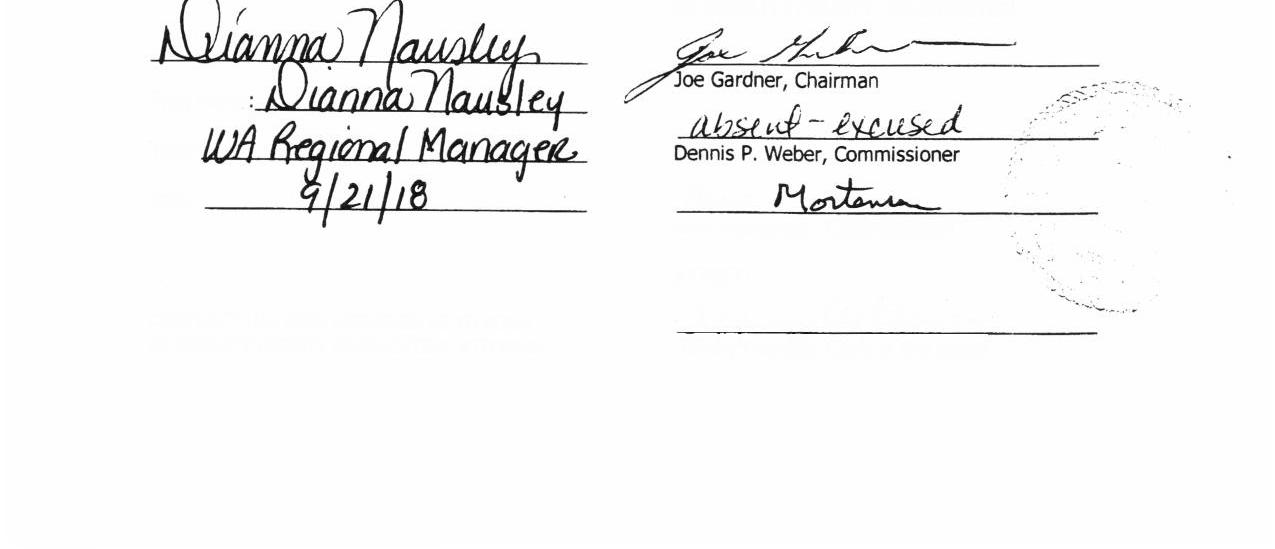 Dianna Nausley
: Dianna Nausley
WA Regional Manager
9/21/18
Joe Gardner
Joe Gardner, Chairman
absent - excused
Dennis P. Weber, Commissioner
Mortensen